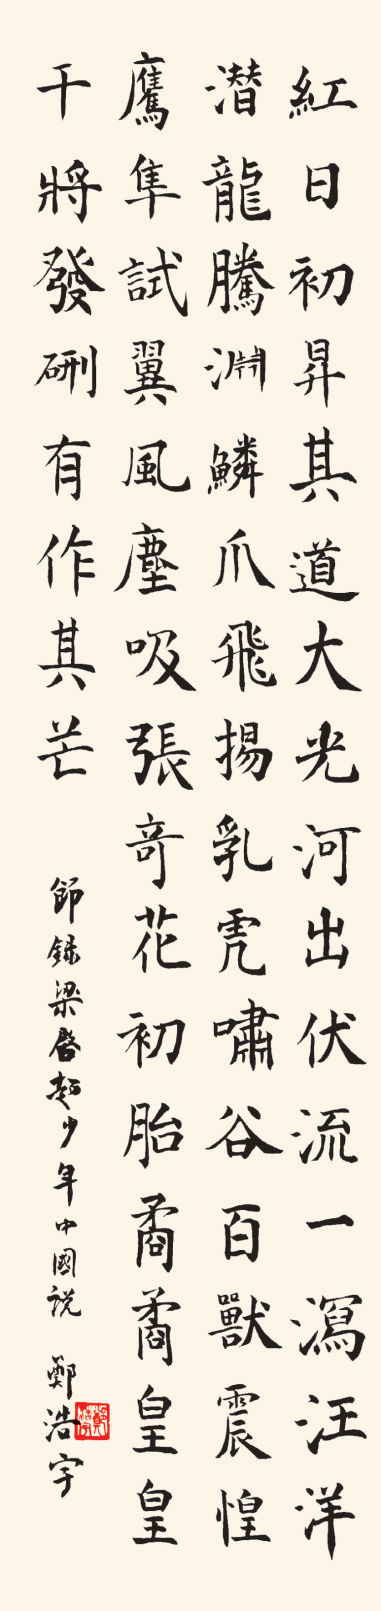 紅日初昇其道大光河出伏流一瀉汪洋
潜龍騰淵鱗爪飛揚乳虎嘯谷百獸震惶
鷹隼試翼風塵吸張奇花初胎矞矞皇皇
干將發硎有作其芒
節錄梁啓超少年中國説 鄭浩宇